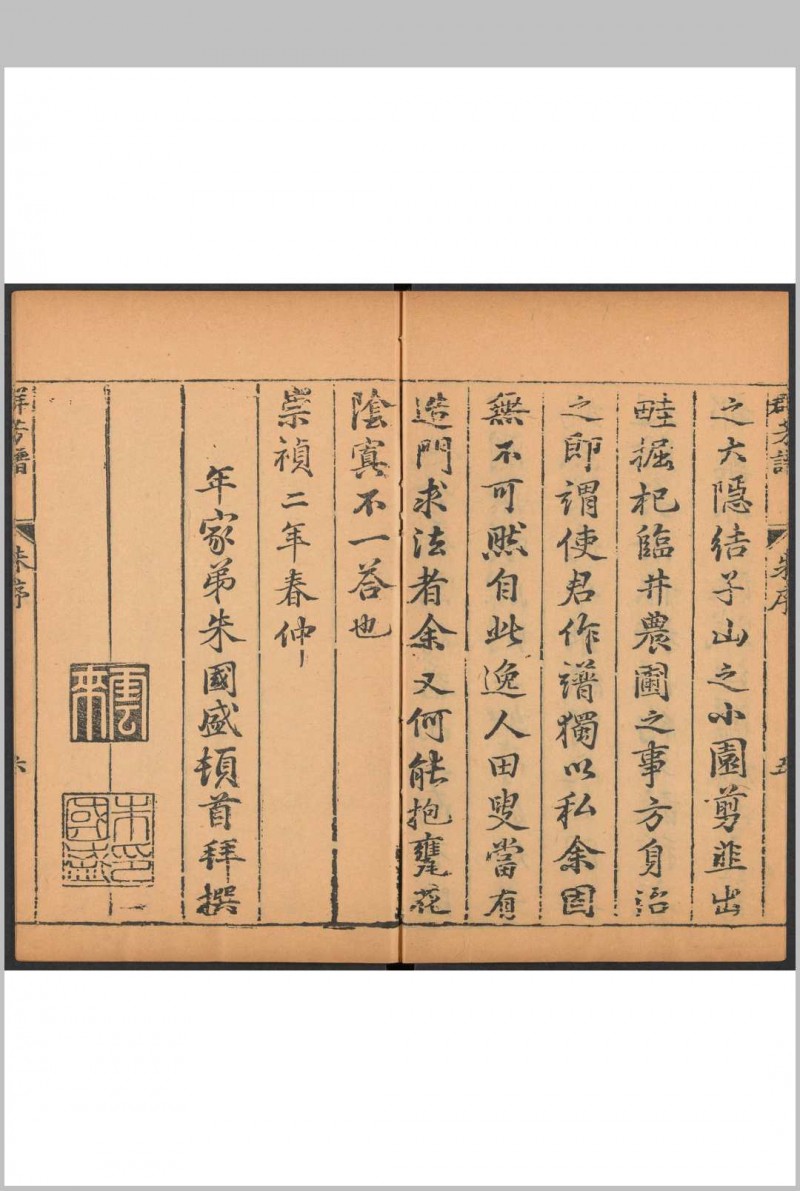 群芳譜 朱序 五
之大隱結子山之小園剪韭出
畦掘杞臨井農圃之事方身治
之即謂使君作譜獨以私余固
無不可然自此逸人田叟當有
造門求法者余又何能抱甕花
陰寞不一荅也
崇禎二年春仲
年家弟朱國盛頓首拜撰
雲來
朱國盛印
群芳譜 朱序 六